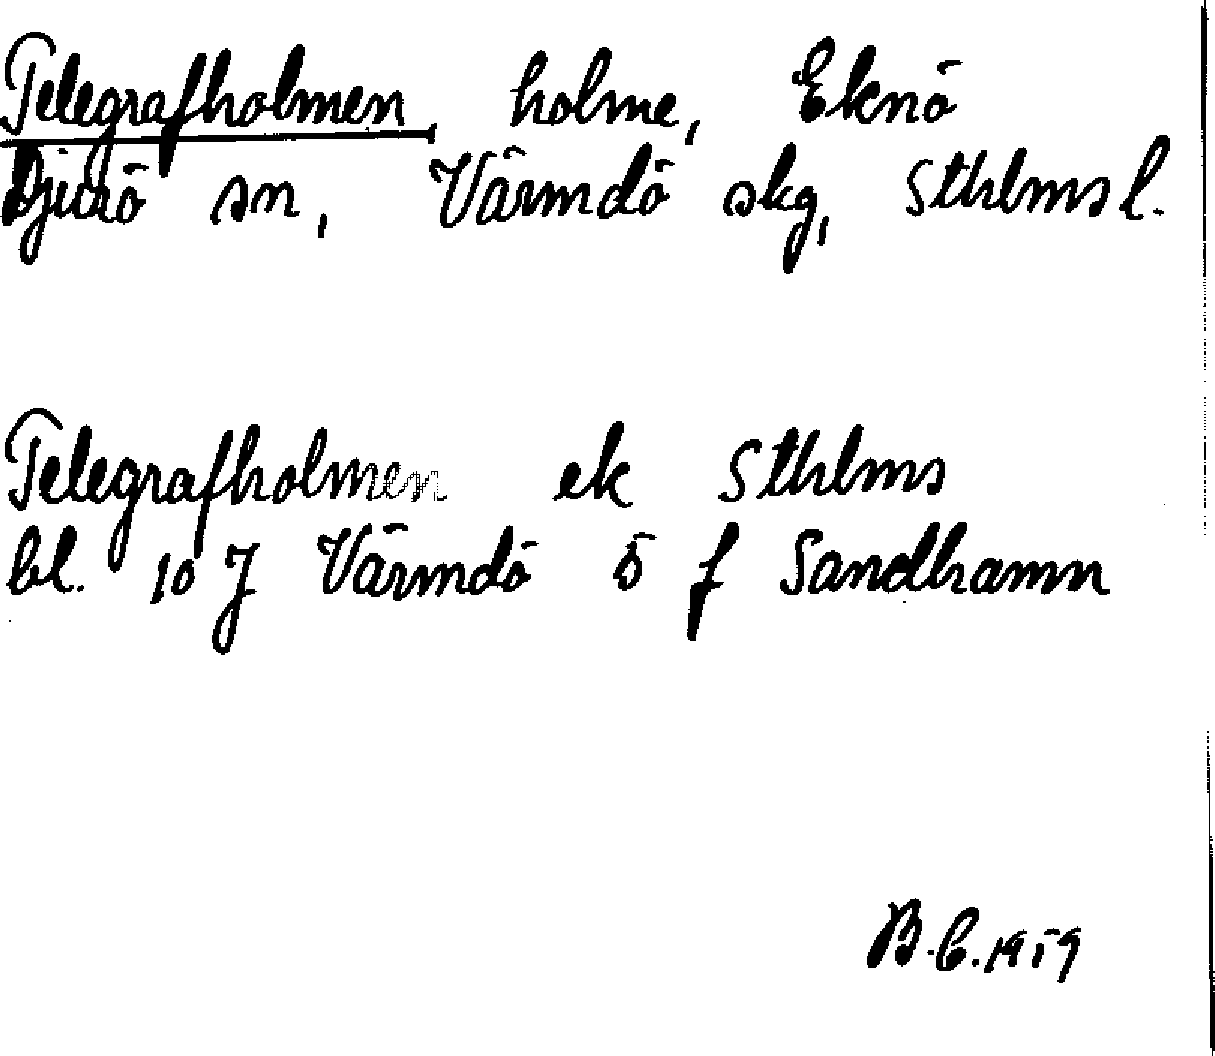 Telegrafholmen, holme, Eknö
Djurö sn, Värmdö skg, Sthlms l.
Telegrafholmen ek Sthlms
bl. 10 J Värmdö ö f Sandhamn
B.C. 1959